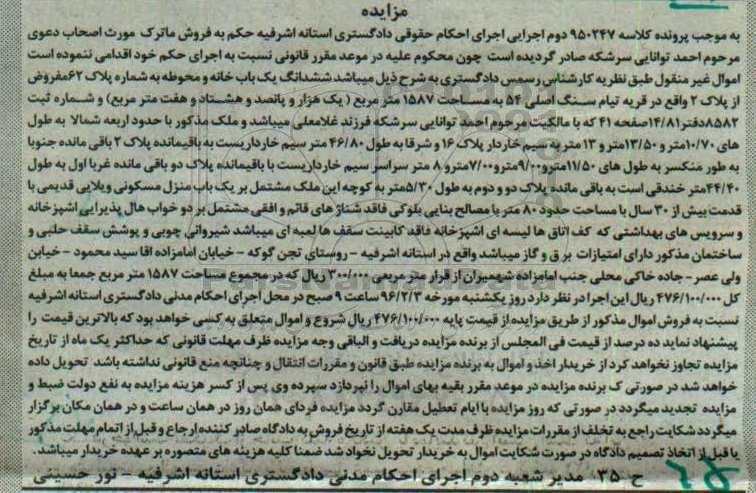 مزایده
به موجب پرونده کلاسه ۹۵۰۲۴۷ دوم اجرایی اجرای احکام حقوقی دادگستری استانه اشرفیه حکم به فروش ماترک مورث اصحاب دعوی
مرحوم احمد توانایی سرشکه صادر گردیده است چون محکوم علیه در موعد مقرر قانونی نسبت به اجرای حکم خود اقدامی ننموده است
اموال غیر منقول طبق نظریه کارشناس رسمس دادگستری به شرح ذیل میباشد ششدانگ یک باب خانه و محوطه به شماره پلاک ۶۲مفروض
از پلاک ۲ واقع در قریه تیام سنگ اصلی ۵۴ به مساحت ۱۵۸۷ متر مربع ( یک هزار و پانصد و هشتاد و هفت متر مربع) و شماره ثبت
۸۵۸۲دفتر۱۴/۸۱صفحه ۴۱ که با مالکیت مرحوم احمد توانایی سرشکه فرزند غلامعلی میباشد و ملک مذکور با حدود اربعه شمالا به طول
های ۱۰/۷۰متر و ۱۳/۵۰متر و ۱۳ متر به سیم خاردار پلاک ۱۶ و شرقا به طول ۴۶/۸۰ متر سیم خارداریست به باقیمانده پلاک ۲ باقی مانده جنوبا
به طور منکسر به طول های ۱۱/۵۰مترو۹/۰۰مترو۷/۰۰مترو ۸ متر سراسر سیم خارداریست با باقیمانده پلاک دو باقی مانده غربا اول به طول
۴۴/۴۰متر خندقی است به باقی مانده پلاک دو و دوم به طول ۵/۳۰متر به کوچه این ملک مشتمل بر یک باب منزل مسکونی ویلایی قدیمی با
قدمت بیش از ۳۰ سال با مساحت حدود ۸۰ متر با مصالح بنایی بلوکی فاقد شناژ های قائم و افقی مشتمل بر دو خواب هال پذیرایی اشپزخانه
و سرویس های بهداشتی که کف اتاق ها لیسه ای اشپزخانه فاقد کابینت سقف ها لمبه ای میباشد شیروانی چوبی و پوشش سقف حلبی و
ساختمان مذکور دارای امتیازات برق و گاز میباشد واقع در استانه اشرفیه – روستای تجن گوکه – خیابان امامزاده اقا سید محمود – خیابن
ولی عصر – جاده خاکی محلی جنب امامزاده شهمیران از قرار متر مربعی ۳۰۰/۰۰۰ ریال که در مجموع مساحت ۱۵۸۷ متر مربع جمعا به مبلغ
کل ۴۷۶/۱۰۰/۰۰۰ ریال این اجرا در نظر دارد روز یکشنبه مورخه ۹۶/۲/۳ ساعت ۹ صبح در محل اجرای احکام مدنی دادگستری استانه اشرفیه
نسبت به فروش اموال مذکور از طریق مزایده از قیمت پایه ۴۷۶/۱۰۰/۰۰۰ ریال شروع و اموال متعلق به کسی خواهد بود که بالاترین قیمت را
پیشنهاد نماید ده درصد از قیمت فی المجلس از برنده مزایده دریافت و الباقی وجه مزایده ظرف مهلت قانونی که حداکثر یک ماه از تاریخ
مزایده تجاوز نخواهد کرد از خریدار اخذ و اموال به برنده مزایده طبق قانون و مقررات انتقال و چنانچه منع قانونی نداشته باشد تحویل داده
خواهد شد در صورتی ک برنده مزایده در موعد مقرر بقیه بهای اموال را نپردازد سپرده وی پس از کسر هزینه مزایده به نفع دولت ضبط و
مزایده تجدید میگردد در صورتی که روز مزایده با ایام تعطیل مقارن گردد مزایده فردای همان روز در همان ساعت و در همان مکان برگزار
میگردد شکایت راجع به تخلف از مقررات مزایده ظرف مدت یک هفته از تاریخ فروش به دادگاه صادر کننده ارجاع و قبل از اتمام مهلت مذکور
یا قبل از اتخاذ تصمیم دادگاه در صورت شکایت اموال به خریدار تحویل نخواد شد ضمنا کلیه هزینه های متصوره بر عهده خریدار میباشد.
ح ۳۵ مدیر شعبه دوم اجرای احکام مدنی دادگستری استانه اشرفیه – نور حسینی